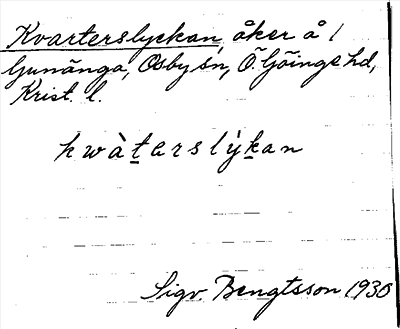 Kvarterslyckan, åker å 1
ljunänga, Osby sn, Ö. Göinge hd,
Krist. l.
kwàterslỳkan
Sigv. Bengtsson 1930